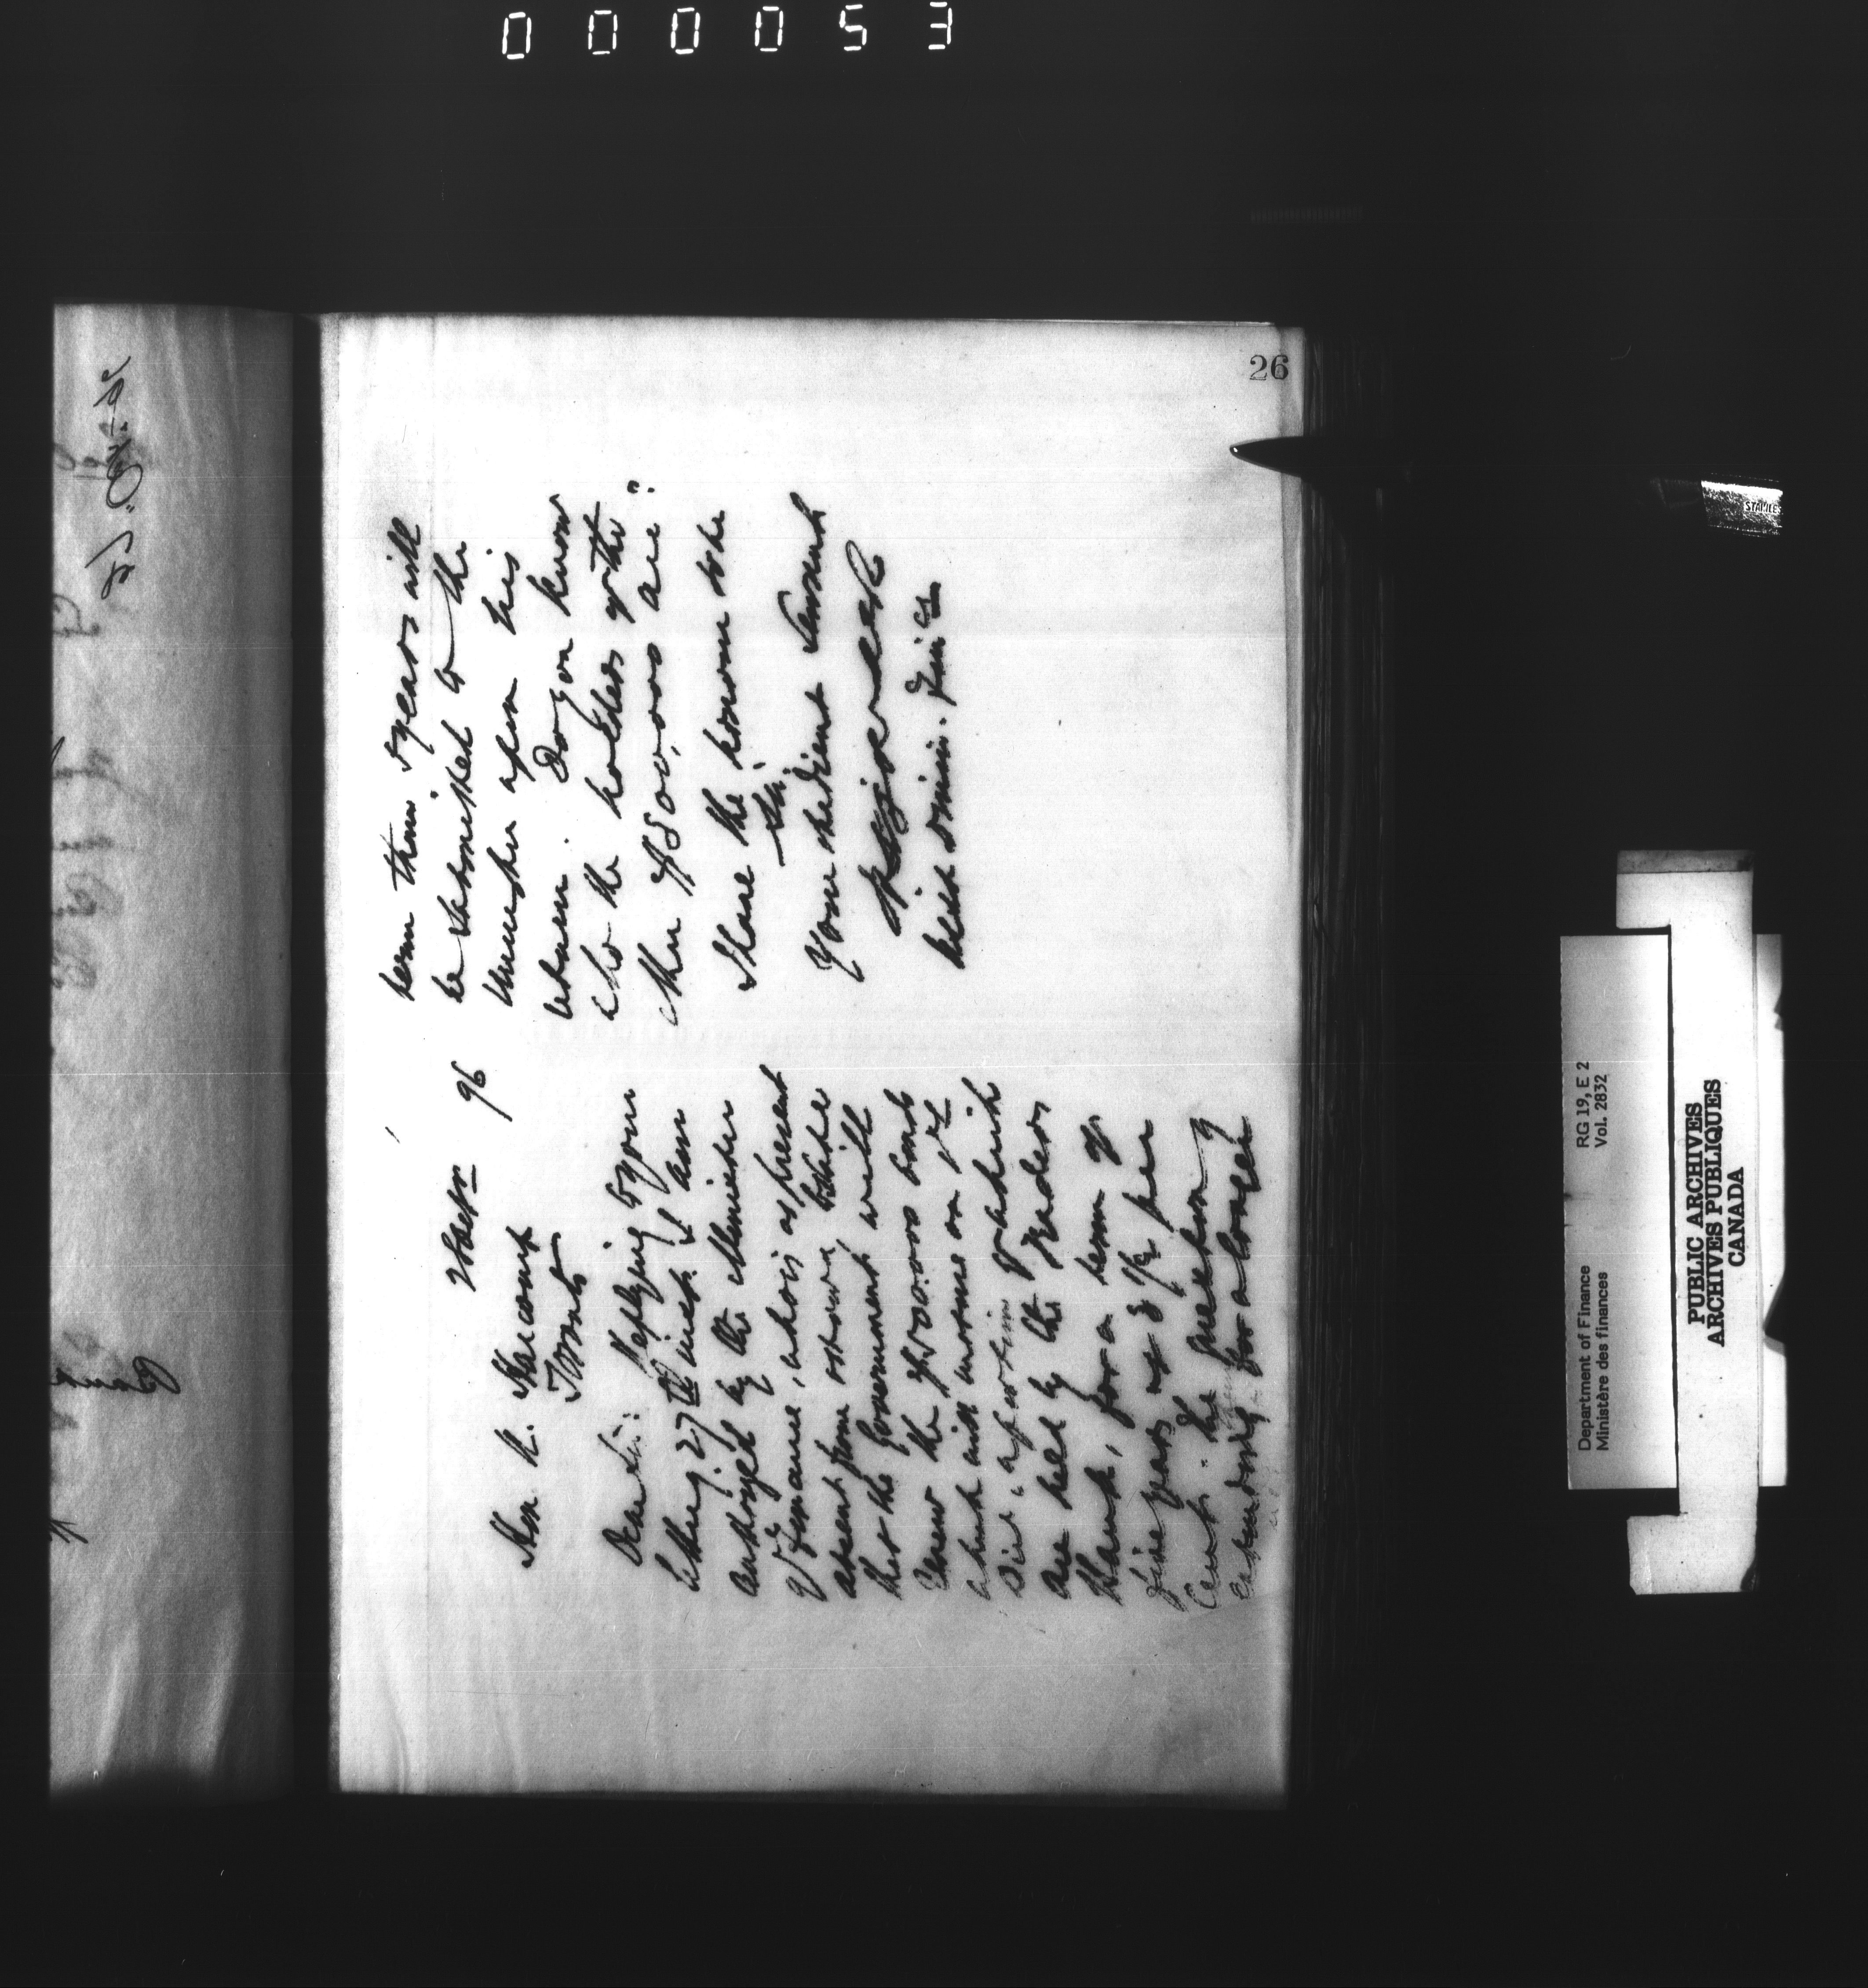 000053
26
96
Hon. R. Harcourt
Toronto
Dear Sir: Replying to your
letter of 27th inst. I am
authorized by the Minister
of Finance, who is at present
absent from Ottawa, to state
that the Government will
renew the $500.000 bonds
which will mature on 1st
of which
are held by the Traders
Bank, for a term of
five years at 3 1/2 per
cent. The question of
extending for a longer
term than 5 years will
be submitted to the
Minister upon his
return. Do you know
who the holders of the
other $500,000 are?
I have the honour to be
Sir,
Your obedient Servant
Dept. Minr. Fince
Department of Finance
Ministère des finances
RG 19, E 2
Vol. 2832
PUBLIC ARCHIVES
ARCHIVES PUBLIQUES
CANADA